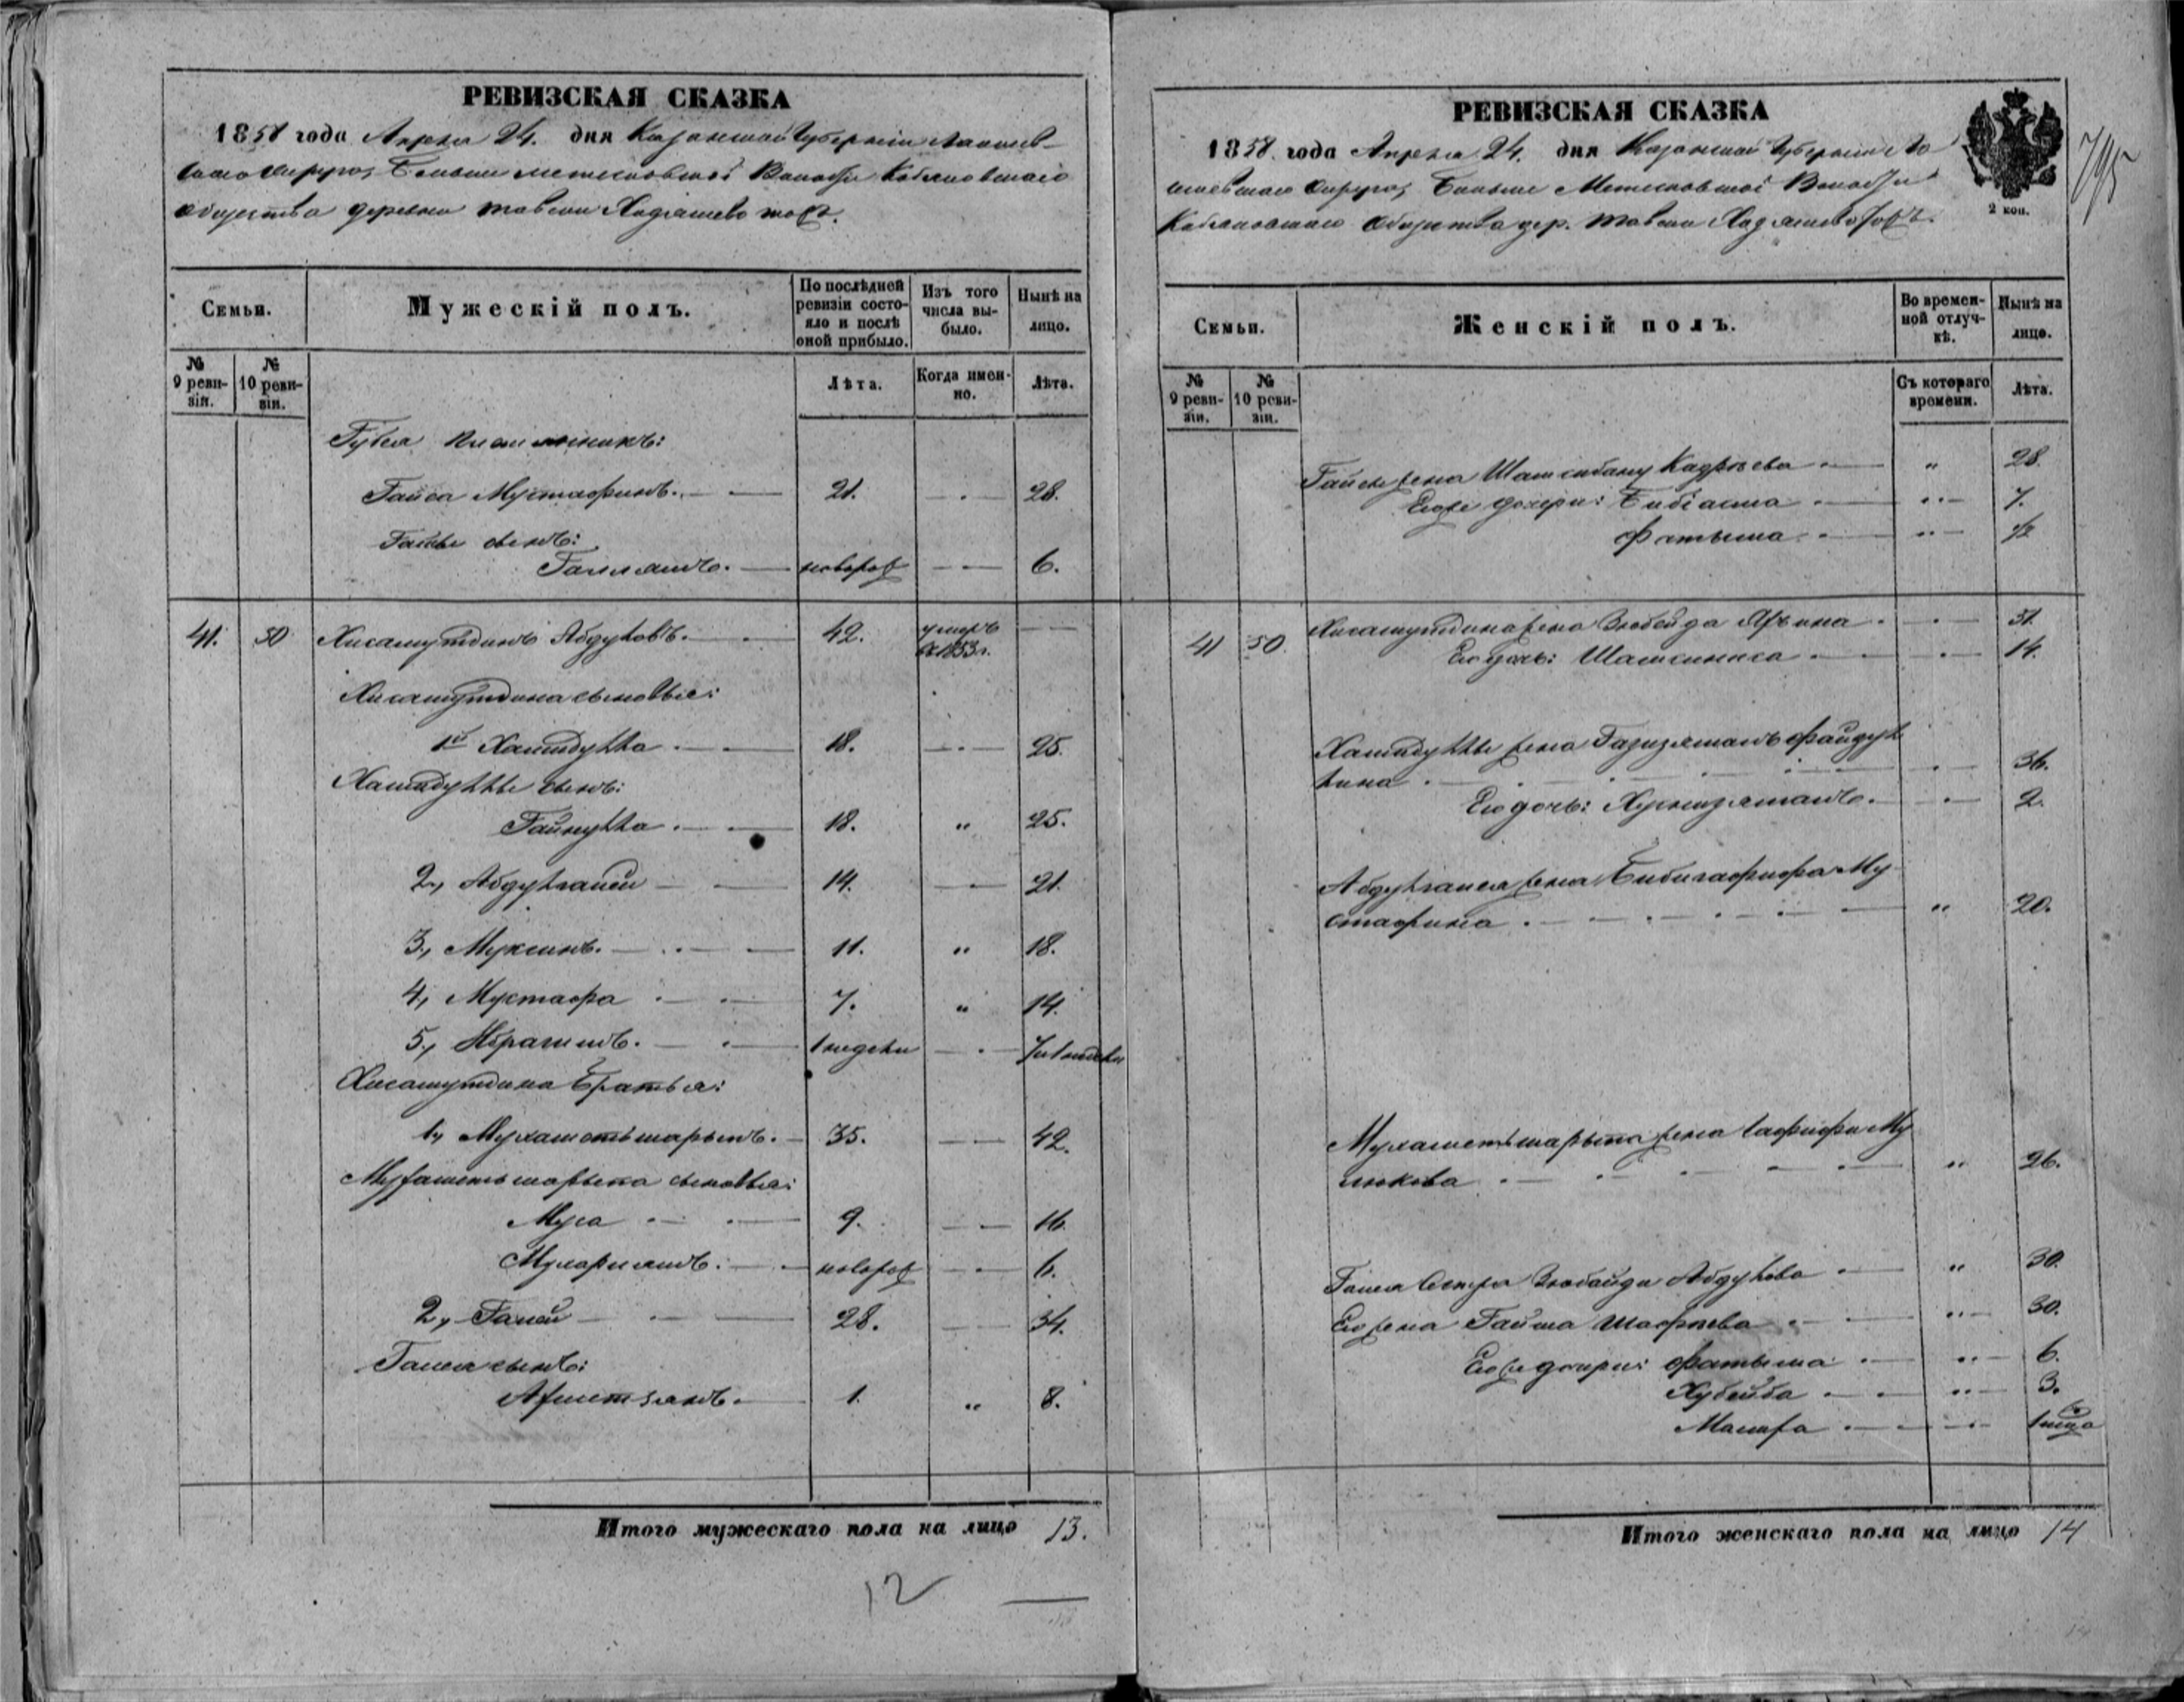 РЕВИЗСКАЯ СКАЗКА
1858 года Апреля 24. дня Казанской Губернiи Лаишев-
скаго округа, Больше Метесковской Волости Кобяковскаго
общества деревни Тавели Хадяшево тож.
Семьи.
Мужескiй полъ.
По послѣдней ревизiи состо-
яло и послѣ оной прибыло.
Изъ того числа вы-
было.
Нынѣ на лицо.
№ 9 реви-
зiи.
№ 10 реви-
зiи.
Лѣта.
Когда имен-
но.
Лѣта.
Губея племянникъ:
Гайса Мустафинъ. 21. 28.
Гайсы сынъ:
новорож 6.
41. 50 Хисамутдинъ Абдуловъ. 42. умеръ въ 1853 г.
Хисамутдина сыновья:
1й Хамидулла 18. 25.
Хамидуллы сынъ:
Гайнулла 18. " 25.
2, Абдулганей 14. 21.
3, Муксинъ. 11. " 18.
4, Мустафа 7. " 14.
5, Ибрагимъ. 1 недели 7 и 1 недели
Хисамутдина братья:
1, Мухаметшарыпъ. 35. 42.
Мухаметшарыпа сыновья:
Муса 9. 16.
новорож 6.
2, Ганей 28. 34.
Ганея сынъ:
Ахметзянъ. 1. " 8.
Итого мужескаго пола на лицо 13.
12
РЕВИЗСКАЯ СКАЗКА
1858. года Апреля 24. дня Казанской Губернiи Ла
ишевскаго округа, Больше Метесковской Волости
Кобяковскаго общества дер. Тавели Хадяшево тожъ.
2 коп.
795
Семьи.
Женскiй полъ.
Во времен-
ной отлуч-
кѣ.
Нынѣ на лицо.
№ 9 реви-
зiи.
№ 10 реви-
зiи.
Съ котораго времени.
Лѣта.
Гайсы жена Шамсибану Кадрѣева " 28.
Его же дочери: Бибiасма " 7.
Фатыма " ½
41 50. Хисамутдина жена Зюбейда 51.
Его дочь: Шамсиниса 14.
Хамидуллы жена Газизямалъ Файдул
лина 36.
Его дочь: 2.
Абдулганея жена Бибигафифа Му-
стафина " 20.
Мухаметшарыпа жена Гафифа Му
" 26.
Ганея сестра Зюбайда Абдулова " 30.
Его жена Гайша " 30.
Его же дочери: Фатыма " 6.
Хубейба " 3.
1 мѣсяца
Итого женскаго пола на лицо 14